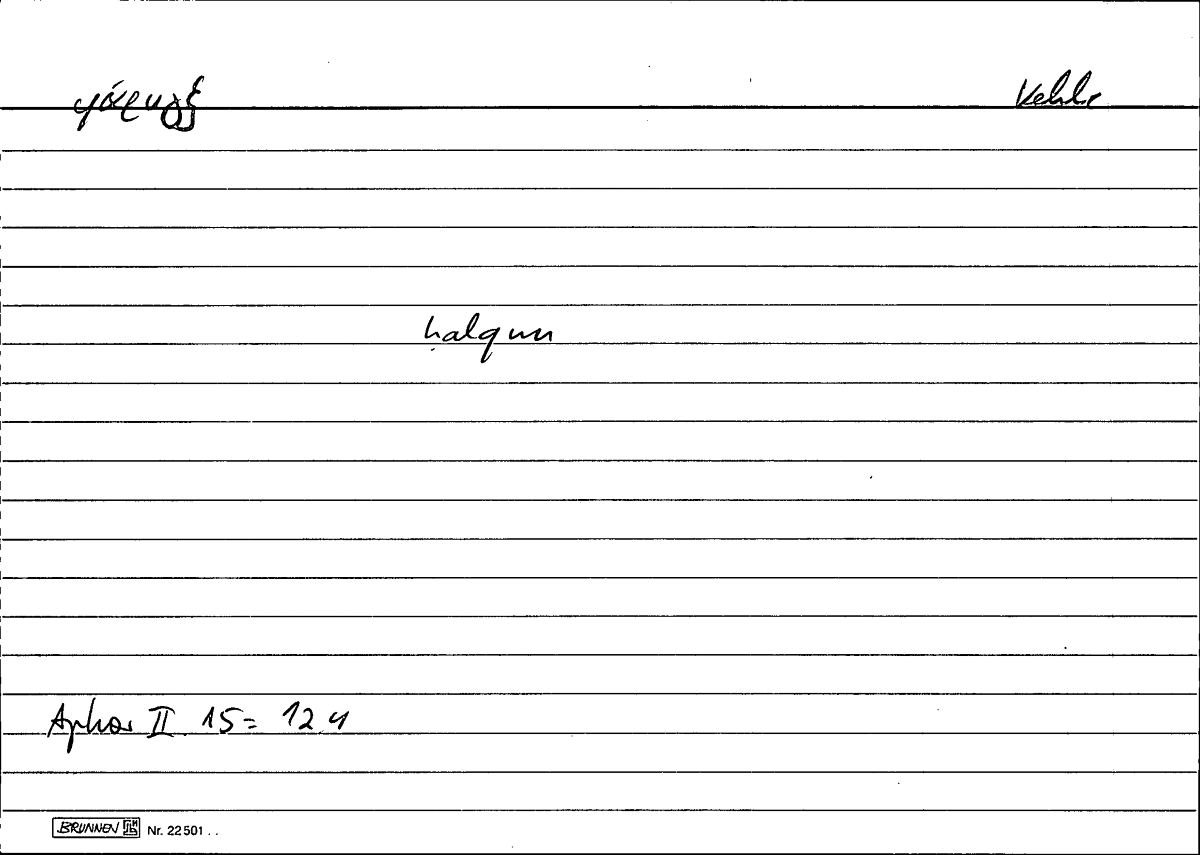 φάρυγξ Kehle
ḥalqun
Aphor II 15 = 12 4
BRUNNEN Nr. 22 501 . .